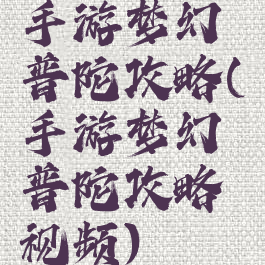 手游梦幻
普陀攻略(
手游梦幻
普陀攻略
视频)